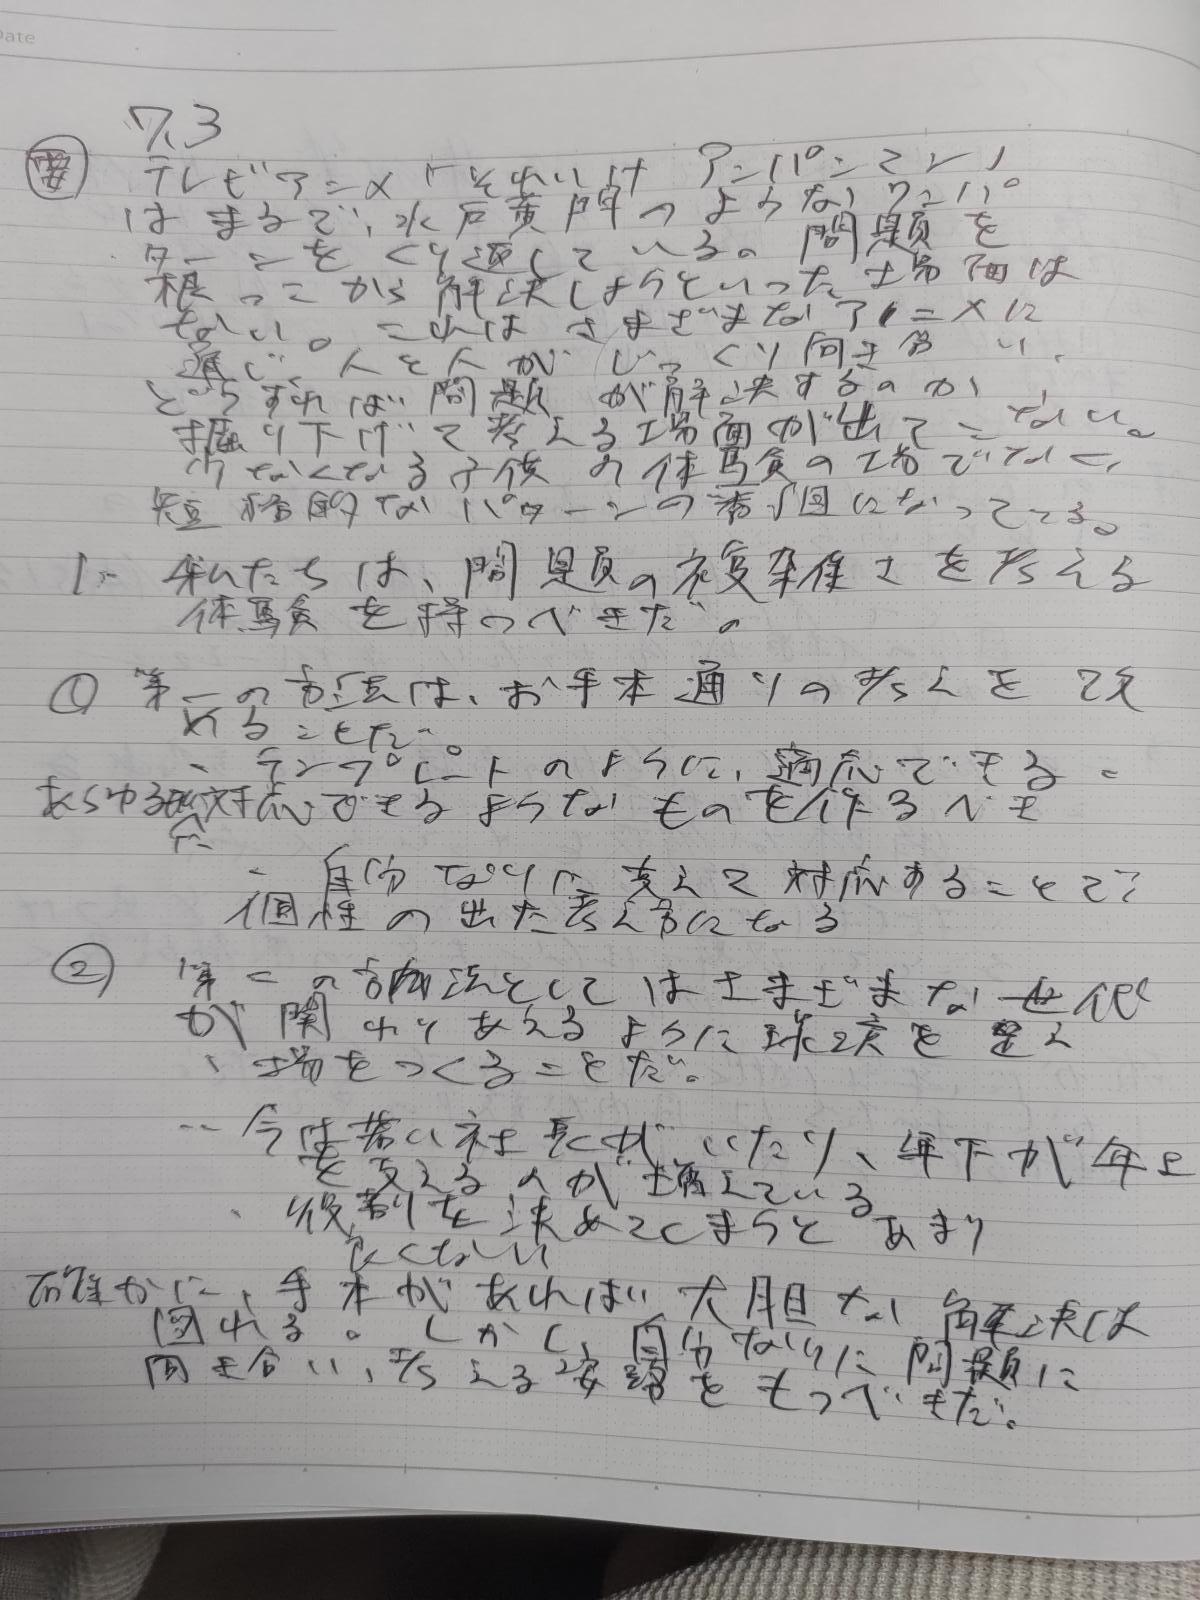 Date
7.3
要 テレビアニメ「それいけ アンパンマン」
は まるで、水戸黄門のようなワンパ
ターンをくり返している。問題を
根っこから解決しようといった場面は
ない。これは さまざまなアニメに
通じ、人と人がじっくり向き合い、
どうすれば問題が解決するのか
掘り下げて考える場面が出てこない。
少なくなる子供の体験の場でなく、
短絡的なパターンの番組になってる。
1. 私たちは、問題の複雑さを考える
体験を持つべきだ。
① 第一の方法は、お手本通りの考えを
めることだ。
・テンプレートのように、適応できる
あらゆる 対応できるようなものを作るべき
・自分なりに考えて対応することで
個性の出た考え方になる
② 第二の方法としてはさまざまな世代
が関わりあえるように を
場をつくることだ。
・今は若い社長がいたり、年下が年上
を支えるのが増えている
・役割を決めてしまうとあまり
良くない
確かに、手本があれば大胆な解決は
図れる。しかし、自分なりに問題に
向き合い、考える姿勢をもつべきだ。